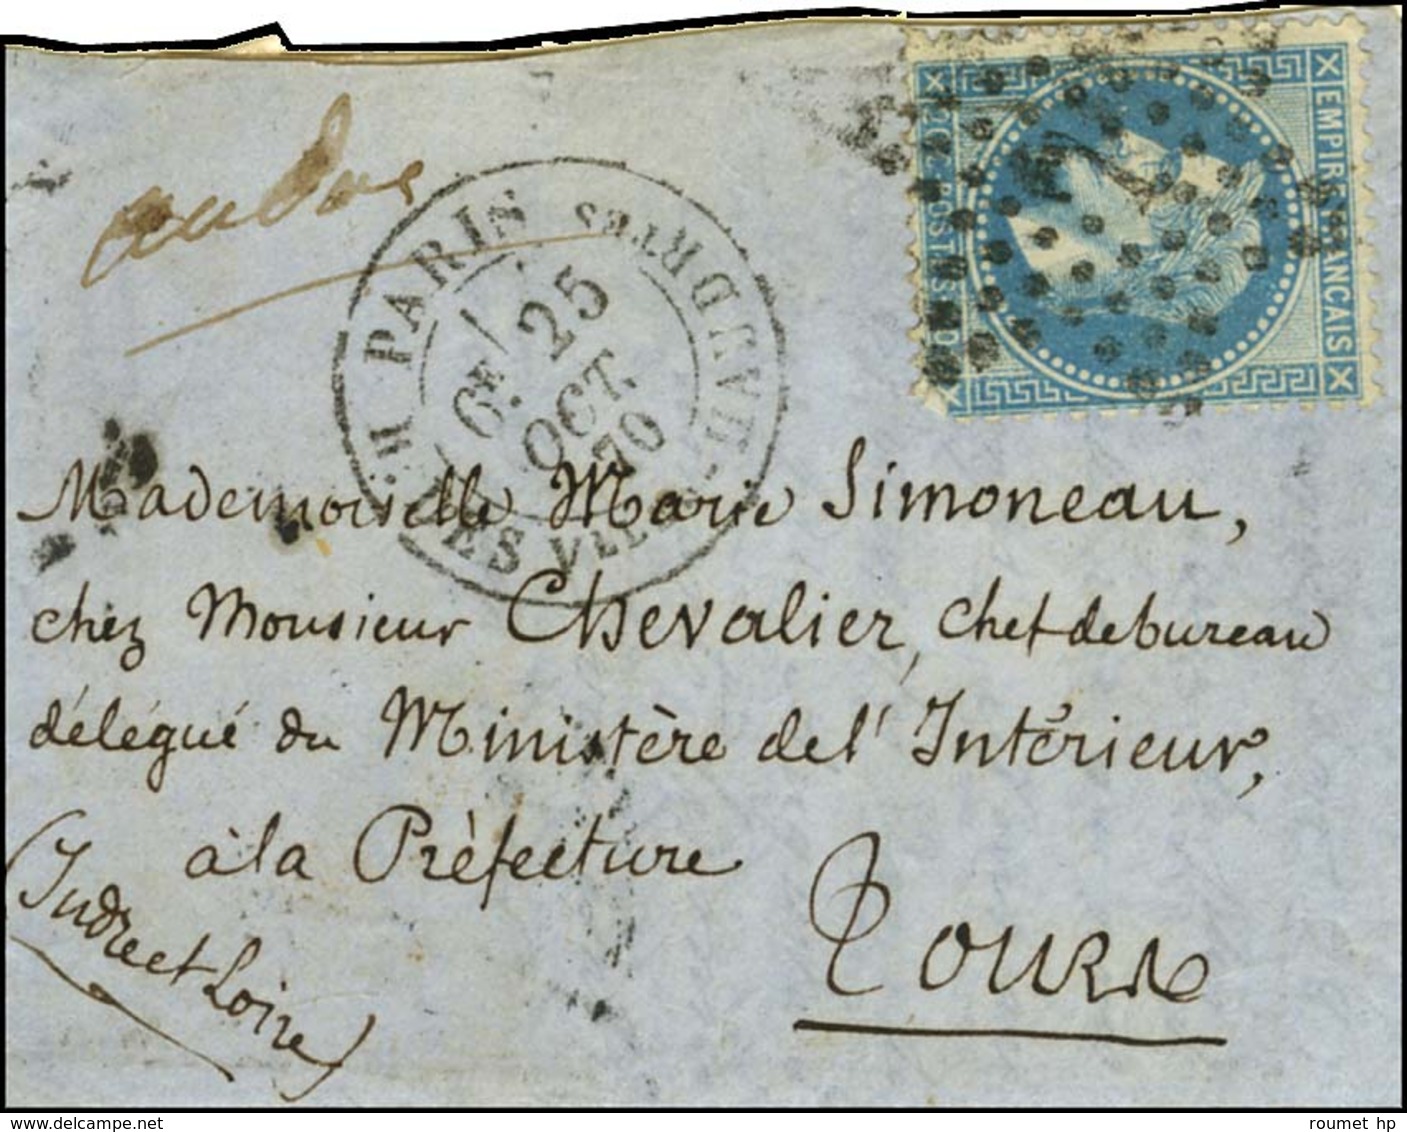 EMPIRE FRANCAIS
20 C POSTES 20 C
PARIS
25
6E
OCT.
70
Mademoiselle Marie Simoneau,
chez Monsieur Chevalier, chef de bureau
délégué du Ministère de l'Intérieur,
à la Préfecture
Tours
(Indre et Loire)
roumet hp